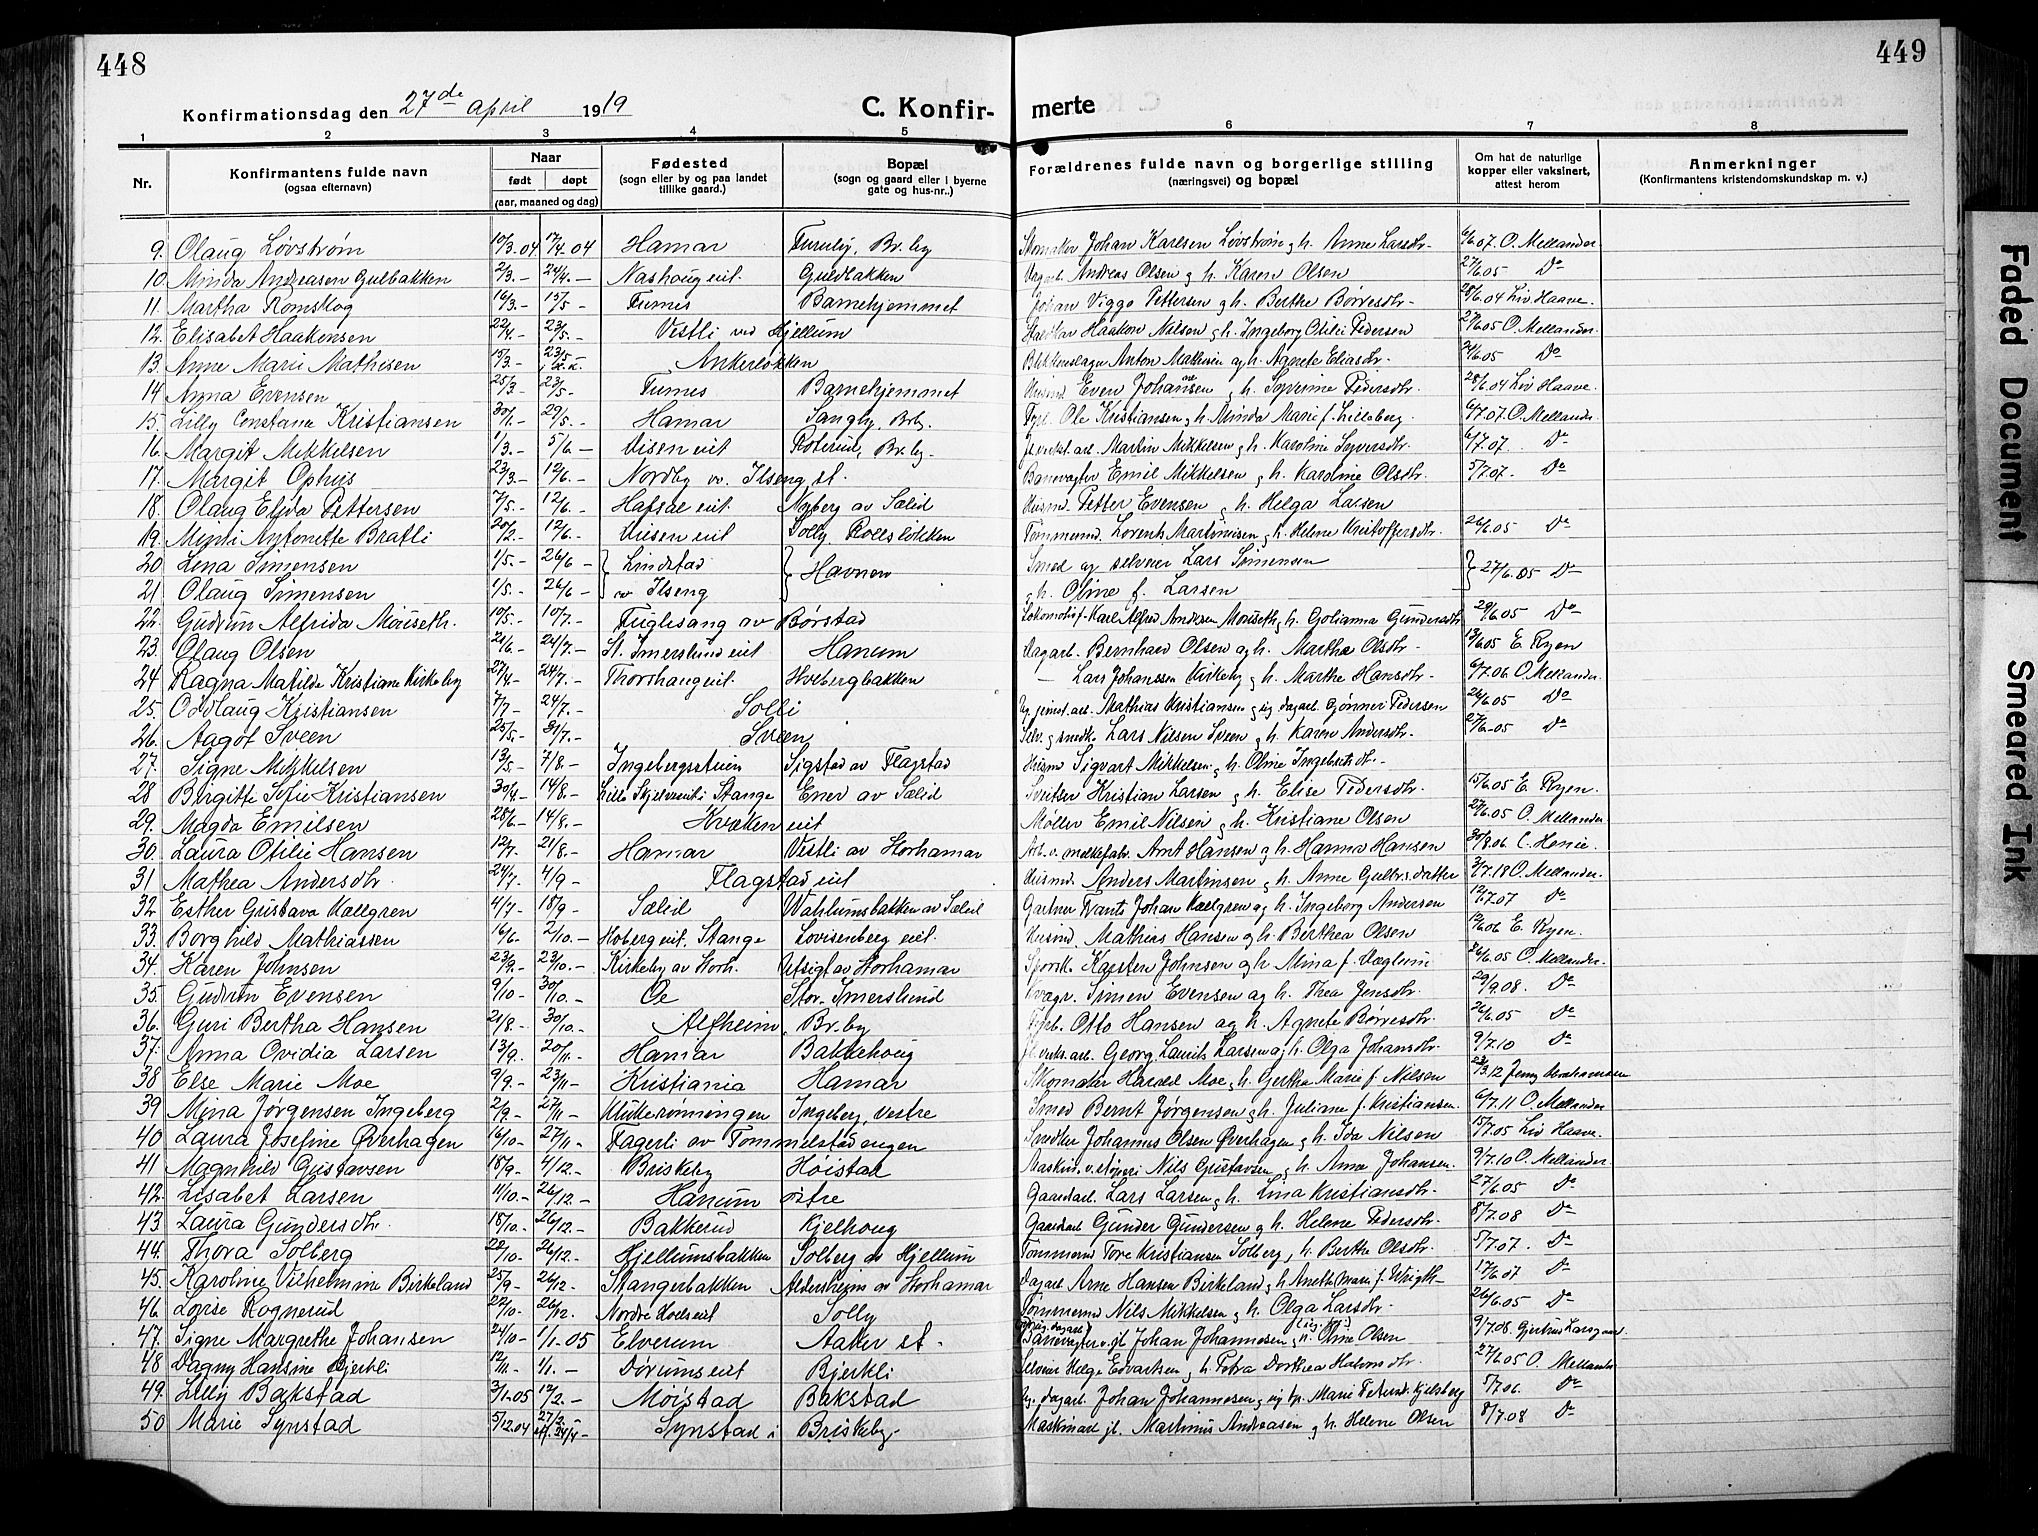 448
449
Konfirmationsdag den 27de april 1919
C. Konfir-
merte
1 2 3 4 5 6 7 8
Nr.
Konfirmantens fulde navn
(ogsaa efternavn)
Naar
født døpt
(aar, maaned og dag)
Fødested
(sogn eller by og paa landet
tillike gaard.)
Bopæl
(sogn og gaard eller i byerne
gate og hus-nr.,)
Forældrenes fulde navn og borgerlige stilling
(næringsvei) og bopæl
Om hat de naturlige
kopper eller vaksinert,
attest herom
Anmerkninger
(Konfirmantens kristendomskundskap m. v.)
9. Olaug Løvstrøm 10/3.04 17/4.04 Hamar Furuby, Br.by Skomaker Johan Karlsen Løvstrøm og h. Anne Larsdtr. 6/6.07 O. Mellander
10. Minda Andreasen Gulbakken 2/3.– 24/4.– Nashoug eit. Guldbakken Dagarb. Andreas Olsen og h. Karen Olsen 27/6.05 Do
11. Martha Romskog 16/3.– 15/5– Furnes Barnehjemmet Johan Viggo Pettersen og h. Berthe Børresdtr. 28/6.04 Liv Haave.
12. Elisabet Haakensen 22/4.– 23/5.– Vestli ved Hjellum Haakon Nilsen og h. Ingeborg Otilie Pedersen 27/6.05 O. Mellander.
13. Anne Marie Mathisen 15/3.– 23/5 Ankerløkken Blikkenslager Anton Mathisen og h. Agnete Eliasdtr. 24/6.05 Do
14. Anna Evensen 25/3.– 23/5– Furnes Barnehjemmet Husmd. Even Johansen og h. Syverine Pedersdtr. 28/6.04 Liv Haave.
15. Lilly Constance Kristiansen 30/1.– 29/5.– Hamar Sangly, Brby. Ole Kristiansen og h. Minda Marie f. Lilleberg 6/7.07. O. Mellander
16. Margit Mikkelsen 1/3.– 5/6– Disen eit Roterud, Br.by. Martin Mikkelsen og h. Karoline Syversdtr. 6/7.07. Do
17. Margit Ophus 23/3.– 12/6.– Nordby v. Ilseng st. Banevagter Emil Mikkelsen og h. Karoline Olsdtr. 5/7.07. Do
18. Olaug Elida Pettersen 7/5.– 12/6.– Hafsal eit. Nyberg av Sælid Husmd. Petter Evensen og h. Helga Larsen
19. Minli Antonette Bratli 20/2.– 12/6.– Disen eit Solly, Rollsløkken Tømmermd. Lorents Martinsen og h. Helene Kristoffersdtr. 26/6.05 Do
20. Lina Simensen 1/5.– 26/6– Lindstad Havnen Smed og selveier Lars Simensen 27/6.05 Do
21. Olaug Simensen 1/5.– 26/6– v Ilseng og h. Oline f. Larsen
22. Gudrun Alfrida Mouseth. 10/5.– 10/7.– Fuglesang av Børstad Lokomotivf. Karl Alfred Andersen Mouseth og h. Golianna Gundersdtr 29/6.05 Do
23. Olaug Olsen 21/6.– 24/7.– St. Imerslund eit. Hanum Dagarb. Bernhard Olsen og h. Martha Olsdtr. 13/6.05 E. Ryen
24. Ragna Matilde Kristiane Kirkeby 27/4– 24/7.– Thorshaug eit. Hvebergbakken – Lars Johanssen Kirkeby og h. Marthe Hansdtr. 6/7.06 O. Mellander.
25. Oddlaug Kristiansen 7/7– 24/7.– Solli Mathias Kristiansen og Gønner Pedersen 26/6.05 Do
26. Aagot Sveen 25/5.– 31/7.– Sveen Lars Nilsen Sveen og h. Karen Andersdtr. 27/6.05 Do
27. Signe Mikkelsen 13/5.– 7/8.– Ingebergsstuen Sigstad av Flagstad Husmd Sigvart Mikkelsen og h. Oline Ingebertsdtr.
28 Birgitte Sofie Kristiansen 30/4.– 14/8.– Lille Skjelve eit i Stange Ener av Sælid Sveitser Kristian Larsen og h. Elise Pedersdtr. 15/6.05 E. Ryen.
29. Magda Emilsen 28/6.– 14/8.– Kvæken eit Møller Emil Nilsen og h. Kristiane Olsen 27/6.05 O. Mellander
30. Laura Otilie Hansen 12/7. 21/8.– Hamar Vestli av Storhamar Arb. v. melkefabr. Arnt Hansen og h. Hanna Hansen 30/8.06 C. Henie.
31 Mathea Andersdtr. 24/7.– 4/9– Flagstad eit Husmd. Anders Martinsen og h. Anne Gulbr.s.datter 3/7.18 O. Mellander.
32. Esther Gustava Källgren 4/7– 18/9– Sælid Wahlumsbakken av Sælid Gartner Svante Johan Källgren og h. Ingeborg Andersen 12/7.07 Do
33. Borghild Mathiassen 16/6.– 2/10.– Hoberg eit. Stange Lovisenberg eit. Husmd. Mathias Hansen og h. Berthea Olsen 12/6.06 E. Ryen.
34. Karen Johnsen 23/9.– 23/10.– Kirkeby av Storh. Utsigt av Storhamar Karsten Johnsen og h. Mina f. Væglum 26/6.05 O. Mellander.
35. Gudrun Evensen 9/10– 30/10.– Oe Stor-Imerslund Simen Evensen og h. Thea Jensdtr. 29/9.08. Do
36. Guri Bertha Hansen 21/8.– 30/10.– Alfheim, Br.by Otto Hansen og h. Agnete Børresdtr. 26/6.05 Do
37. Anna Ovidia Larsen 13/9. 20/11.– Hamar Bakkehoug Georg Laurits Larsen og h. Olga Johansdtr. 9/7.10 Do
38 Else Marie Moe 9/9.– 23/11– Kristiania Hamar Skomaker Harald Moe og h. Gertha Marie f. Nilsen 23/3.12 Jenny Abrahamsen
39 Mina Jørgensen Ingeberg 2/9.– 27/11– Klukerønningen Ingeberg, vestre Smed Bernt Jørgensen og h. Juliane f. Kristiansen. 6/7.11 O. Mellander
40 Laura Josefine Øverhagen 16/10– 27/11– Fagerli av Tommelstad engen Snedker Johannes Olsen Øverhagen og h. Ida Nilsen 15/7.05 Liv Haave.
41 Magnhild Gustavsen 18/9– 4/12.– Briskeby Høistad Nils Gustavsen og h. Anna Johansen. 9/7.10 O. Mellander.
42. Lisabet Larsen 11/10.– 26/12.– Hanum østre Gaardarb. Lars Larsen og h. Lina Kristiansdtr. 27/6.05 Do
43. Laura Gundersdtr. 18/10.– 26/12.– Bakkerud Kjelhoug Gaardarb. Gunder Gundersen og h. Helene Pedersdtr. 8/7.08 Do
44. Thora Solberg 22/10– 26/12.– Hjellumsbakken Solberg av Hjellum Tømmermd Tore Kristiansen Solberg, h. Berthe Olsdtr. 5/7.07. Do
45. Karoline Vilhelmine Birkeland 25/9– 26/12.– Stangerbakken Aldersheim av Storhamar Dagarb Arne Hansen Birkeland og h Anette Marie f. Wrigth– 17/6.07 Do
46. Lovise Rognerud 27/10.– 26/12. Nordre Hoel eit Solly Tømmermd Nils Mikkelsen og h. Olga Larsdtr. 26/6.05 Do
47. Signe Margrethe Johansen 24/10– 1/1–05 Elverum Aaker st. Banevagter v. jb Johan Johannesen og h. Oline Olsen 9/7.08. Gjertrud Larsgaard.
48 Dagny Hansine Bjerkli 12/11.– 1/1.– Dørum eit Bjerkli Selveier Helge Edvartsen og h. Petra Dorthea Halvorsdtr. 27/6.05 O. Mellander
49. Lilly Bakstad 3/1.05 12/2.– Moistad Bakstad Johan Johannesen og Marie Petersd. Kjelsberg 5/7.06. Do
50 Marie Synstad 5/12.04 27/2.– 24/4– Synstad i Briskeby– Maskinarb jb. Martinus Andreasen og h. Helene Olsen 8/7.08 Do
Faded Document
Smeared Ink